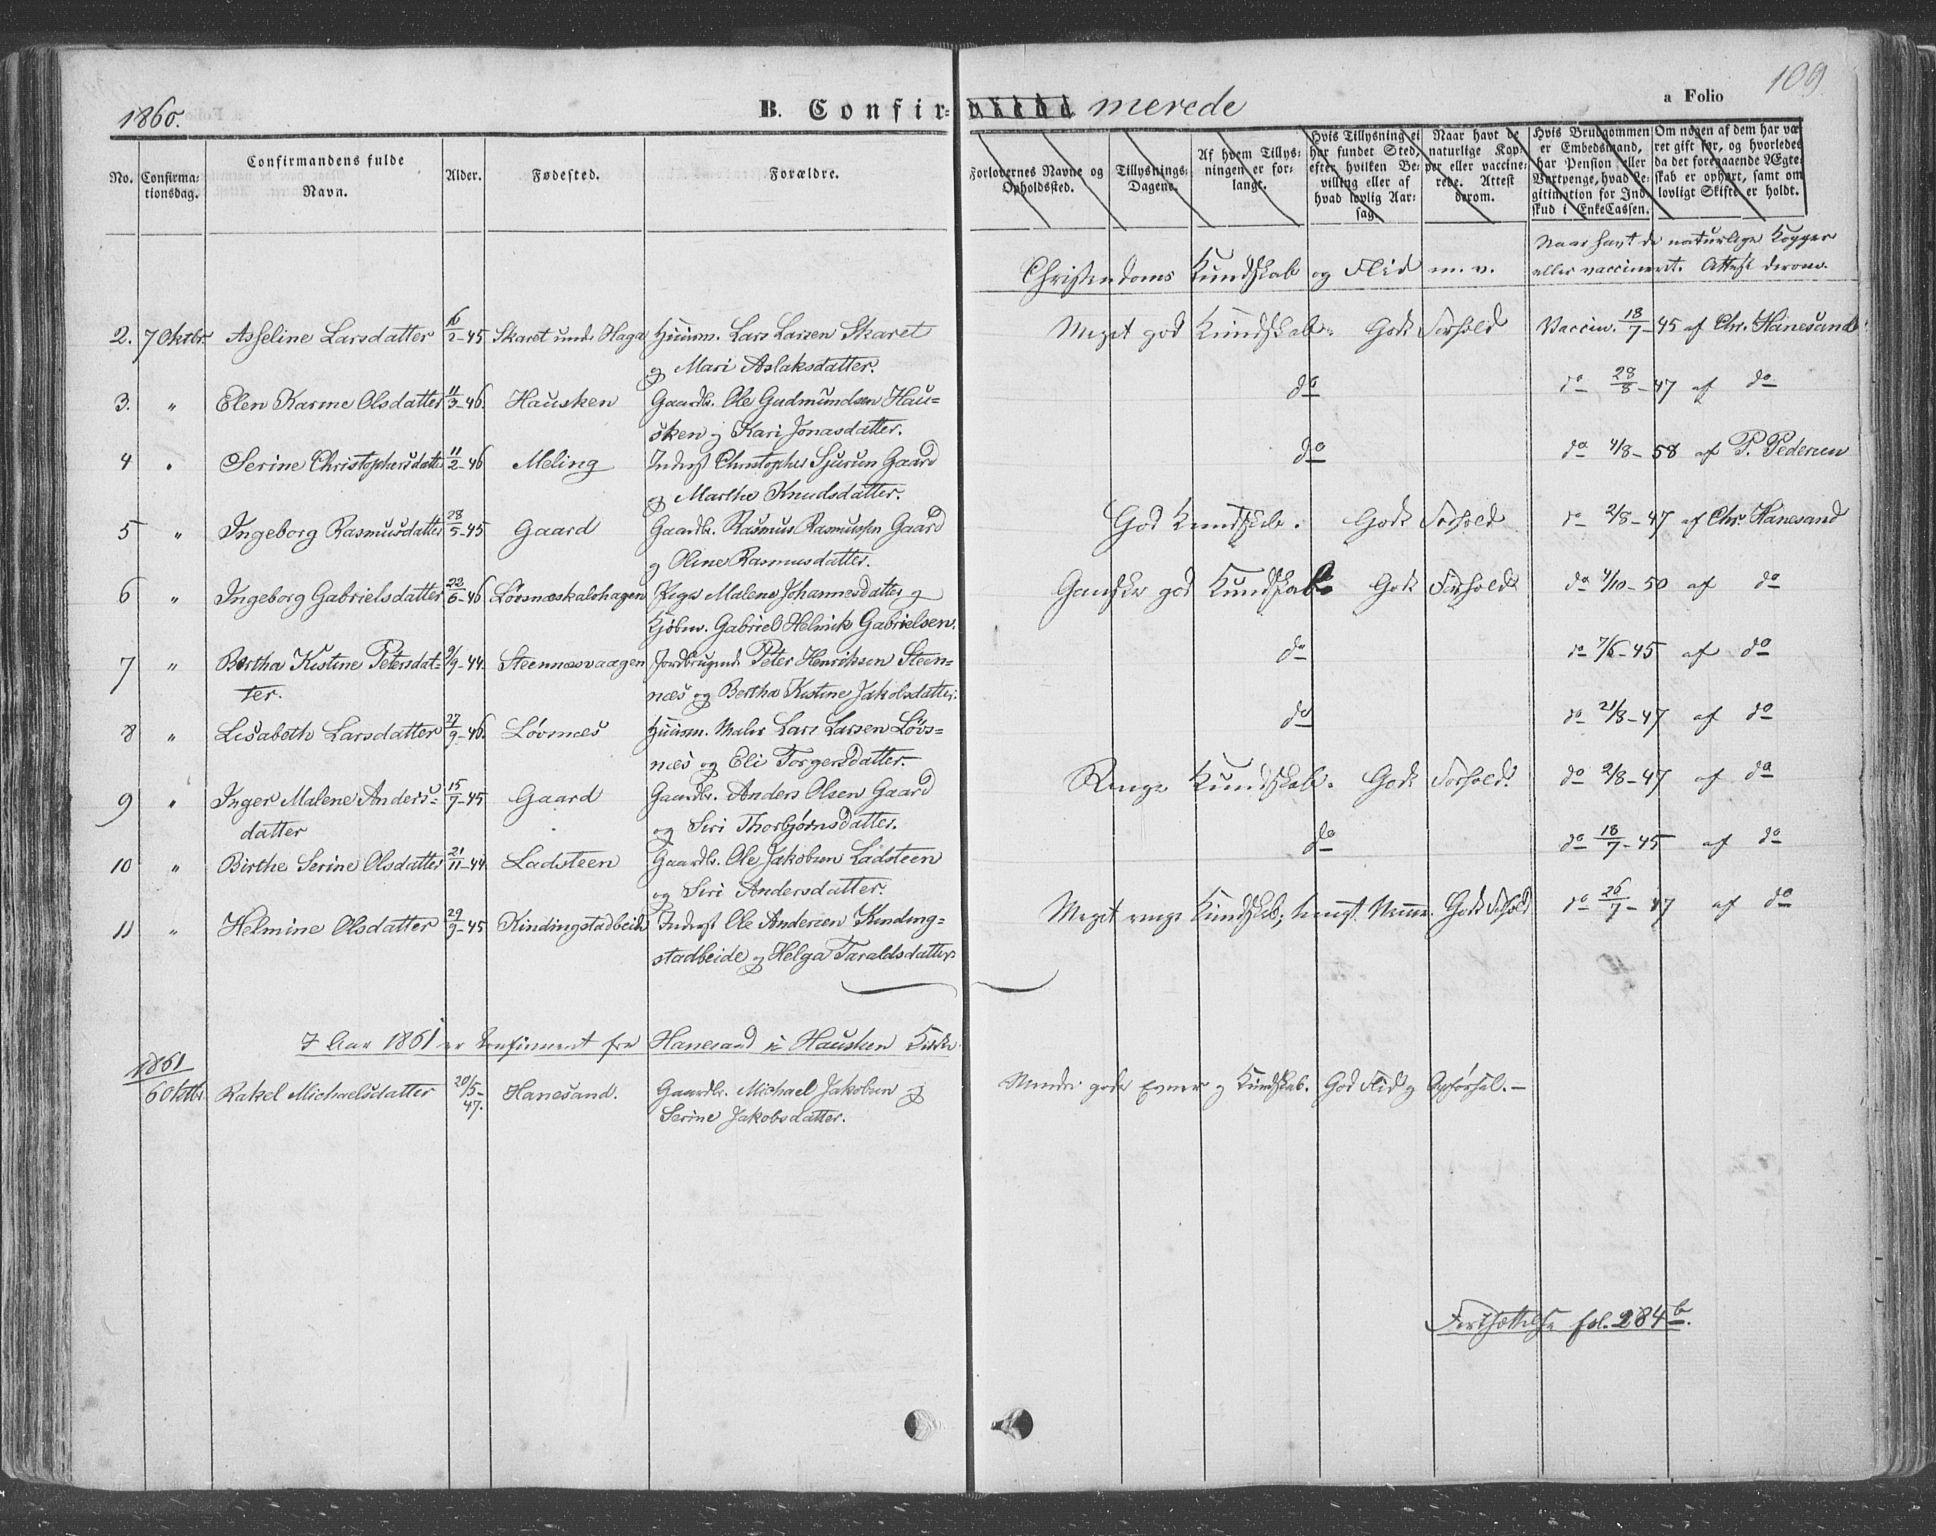 1860.
B. Confir- merede
a Folio 109.
No.
Confirma-
tionsdag.
Confirmandens fulde
Navn.
Alder.
Fødested.
Forældre.
Forlovernes Navne og
Opholdssted.
Tillysnings-
Dagene.
Af hvem Tillys-
ningen er for-
langt.
Hvis Tillysning ei
har fundet Sted,
efter hvilken Be-
villing eller af
hvad lovlig Aar-
sag.
Naar havt de
naturlige Kop-
per eller vaccine-
rede. Attest
derom.
Hvis Brudgommen
er Embedsmand,
har Pension eller
Vartpenge, hvad Le-
gitimation for Ind-
skud i EnkeCassen.
Om nogen af dem har væ-
ret gift før, og hvorledes
da det foregaaende Ægte-
skab er ophørt, samt om
lovligt Skifte er holdt.
Christendoms Kundskab og Flid m. v.
Naar havt de naturlige Kopper
eller vaccineret. Attest derom.
2. 7 Oktbr. Asseline Larsdatter 16/2-45 Skaret unde Haga Huusm. Lars Larsen Skaret Meget god Kundskab. Godt Forhold Vaccin. 18/7-45 af Chr. Hanesand
og Mari Aslaksdatter.
3. " Elen Karine Olsdatter 11/3-46. Hausken Gaardb. Ole Gudmundsen Hau- do do 28/8-47 af do
sken og Kari Jonasdatter.
4 " Serine Christophersdatter 11/2-46 Meling Inderst Christopher Sjursen Gaard do do 4/8-58 af P. Pedersen
og Marthe Knudsdatter.
5 " Ingeborg Rasmusdatter 28/5-45 Gaard Gaardb. Rasmus Rasmussen Gaard God Kundskab. Godt Forhold do 2/8-47 af Chr. Hanesand
og Oline Rasmusdatter.
6 " Ingeborg Gabrielsdatter 22/6-46 Løvsnæskalvhagen Pige Malene Johannesdatter og Ganske god Kundskab Godt Forhold do 4/10-50 af do
Kjøbm. Gabriel Helvick Gabrielsen.
7 " Bertha Kistine Petersdat- 9/9-44. Steennæsvaagen Jordbrugend. Peter Henriksen Steen- do do 7/6-45 af do
ter. næs og Bertha Kistine Jakobsdatter.
8 " Lisabeth Larsdatter 27/9-46. Løvsnæs Huusm. Maler Lars Larsen Løvs- do do 21/8-47 af do
næs og Eli Torgersdatter.
9 " Inger Malene Anders- 15/7-45 Gaard Gaardb. Anders Olsen Gaard Ringe Kundskab. Godt Forhold. do 2/8-47 af do
datter og Siri Thorbjørnsdatter.
10 " Birthe Serine Olsdatter 21/11-44. Ladsteen Gaardb. Ole Jakobsen Ladsteen do do 18/7-45 af do
og Siri Andersdatter.
11 " Helmine Olsdatter 29/9-45 Kindingstadbeide Inderst Ole Andersen Kinding- Meget ringe Kundskab; tungt Nemme. Godt Forhold do 26/7-47 af do
stadbeide og Helga Taraldsdatter
I Aar 1861 er Confirmeret fra Hanesand i Hausken Kirke
1861
6 Oktbr. Rakel Michaelsdatter 20/5-47. Hanesand. Gaardb. Michael Jakobsen og Mindre gode Evner og Kundskab. God Flid og Opførsel. —
Serine Jakobsdatter.
Fortsættelse fol. 284 b.